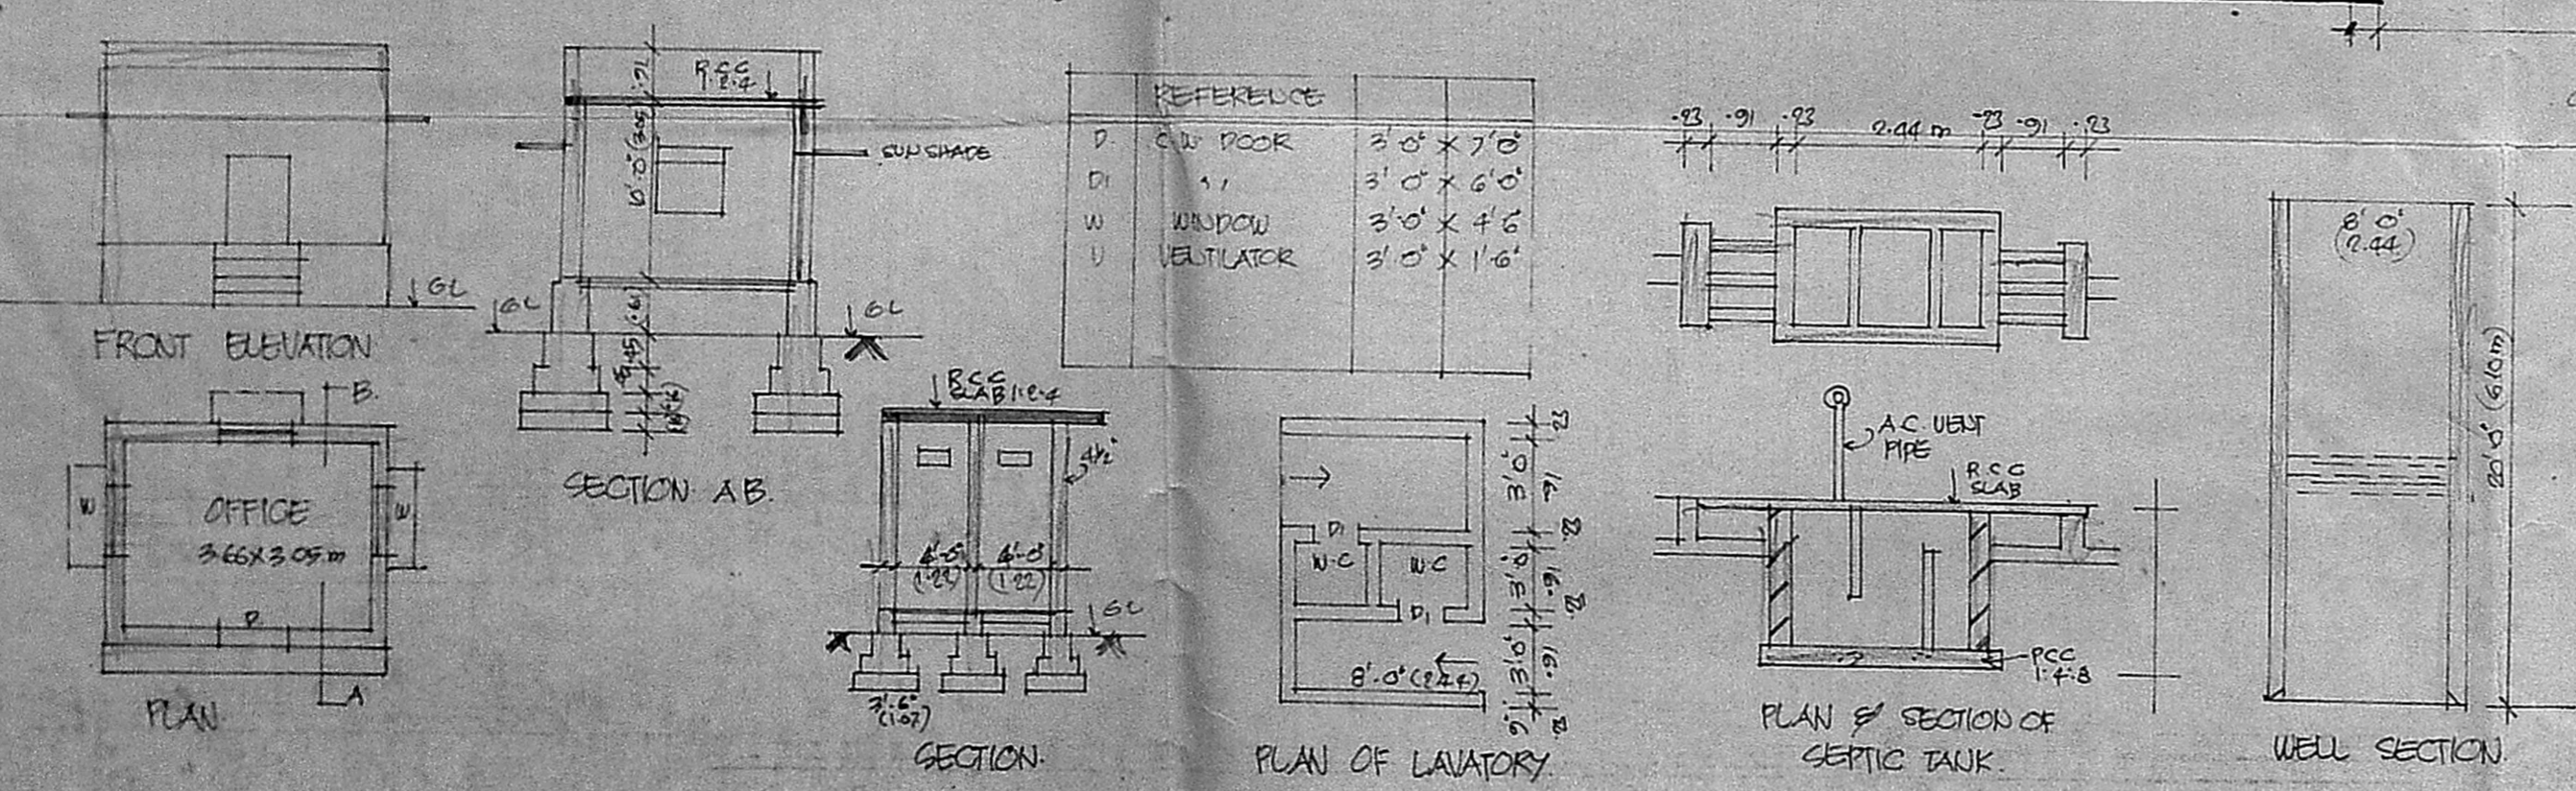 GL
FRONT ELEVATION
B.
OFFICE
3.66 X 3.05 m
W
W
D
A
PLAN
R.C.C
1:2:4
.91
10'.0" (3.05)
SUN SHADE
GL
GL
(.61)
.45
SECTION AB.
R.C.C
SLAB 1:2:4
4½"
4'-0"
(1.22)
4'-0"
(1.22)
GL
3'.6"
(1.07)
SECTION.
REFERENCE
D. C.W. DOOR 3'.0" X 7'0"
D1 " 3'.0" X 6'0"
W WINDOW 3'.0" X 4'6"
V VENTILATOR 3'.0" X 1'.6"
D1
W.C
W.C
D1
8'.0" (2.44)
.23
3'.0"
.91
3'.0"
.91
3'.0"
.91
9"
PLAN OF LAVATORY.
.23 .91 .23 2.44 m .23 .91 .23
A.C. VENT
PIPE
R.C.C
SLAB
PCC
1:4:8
PLAN & SECTION OF
SEPTIC TANK.
8' 0"
(2.44)
20'.0" (6.10m)
WELL SECTION.